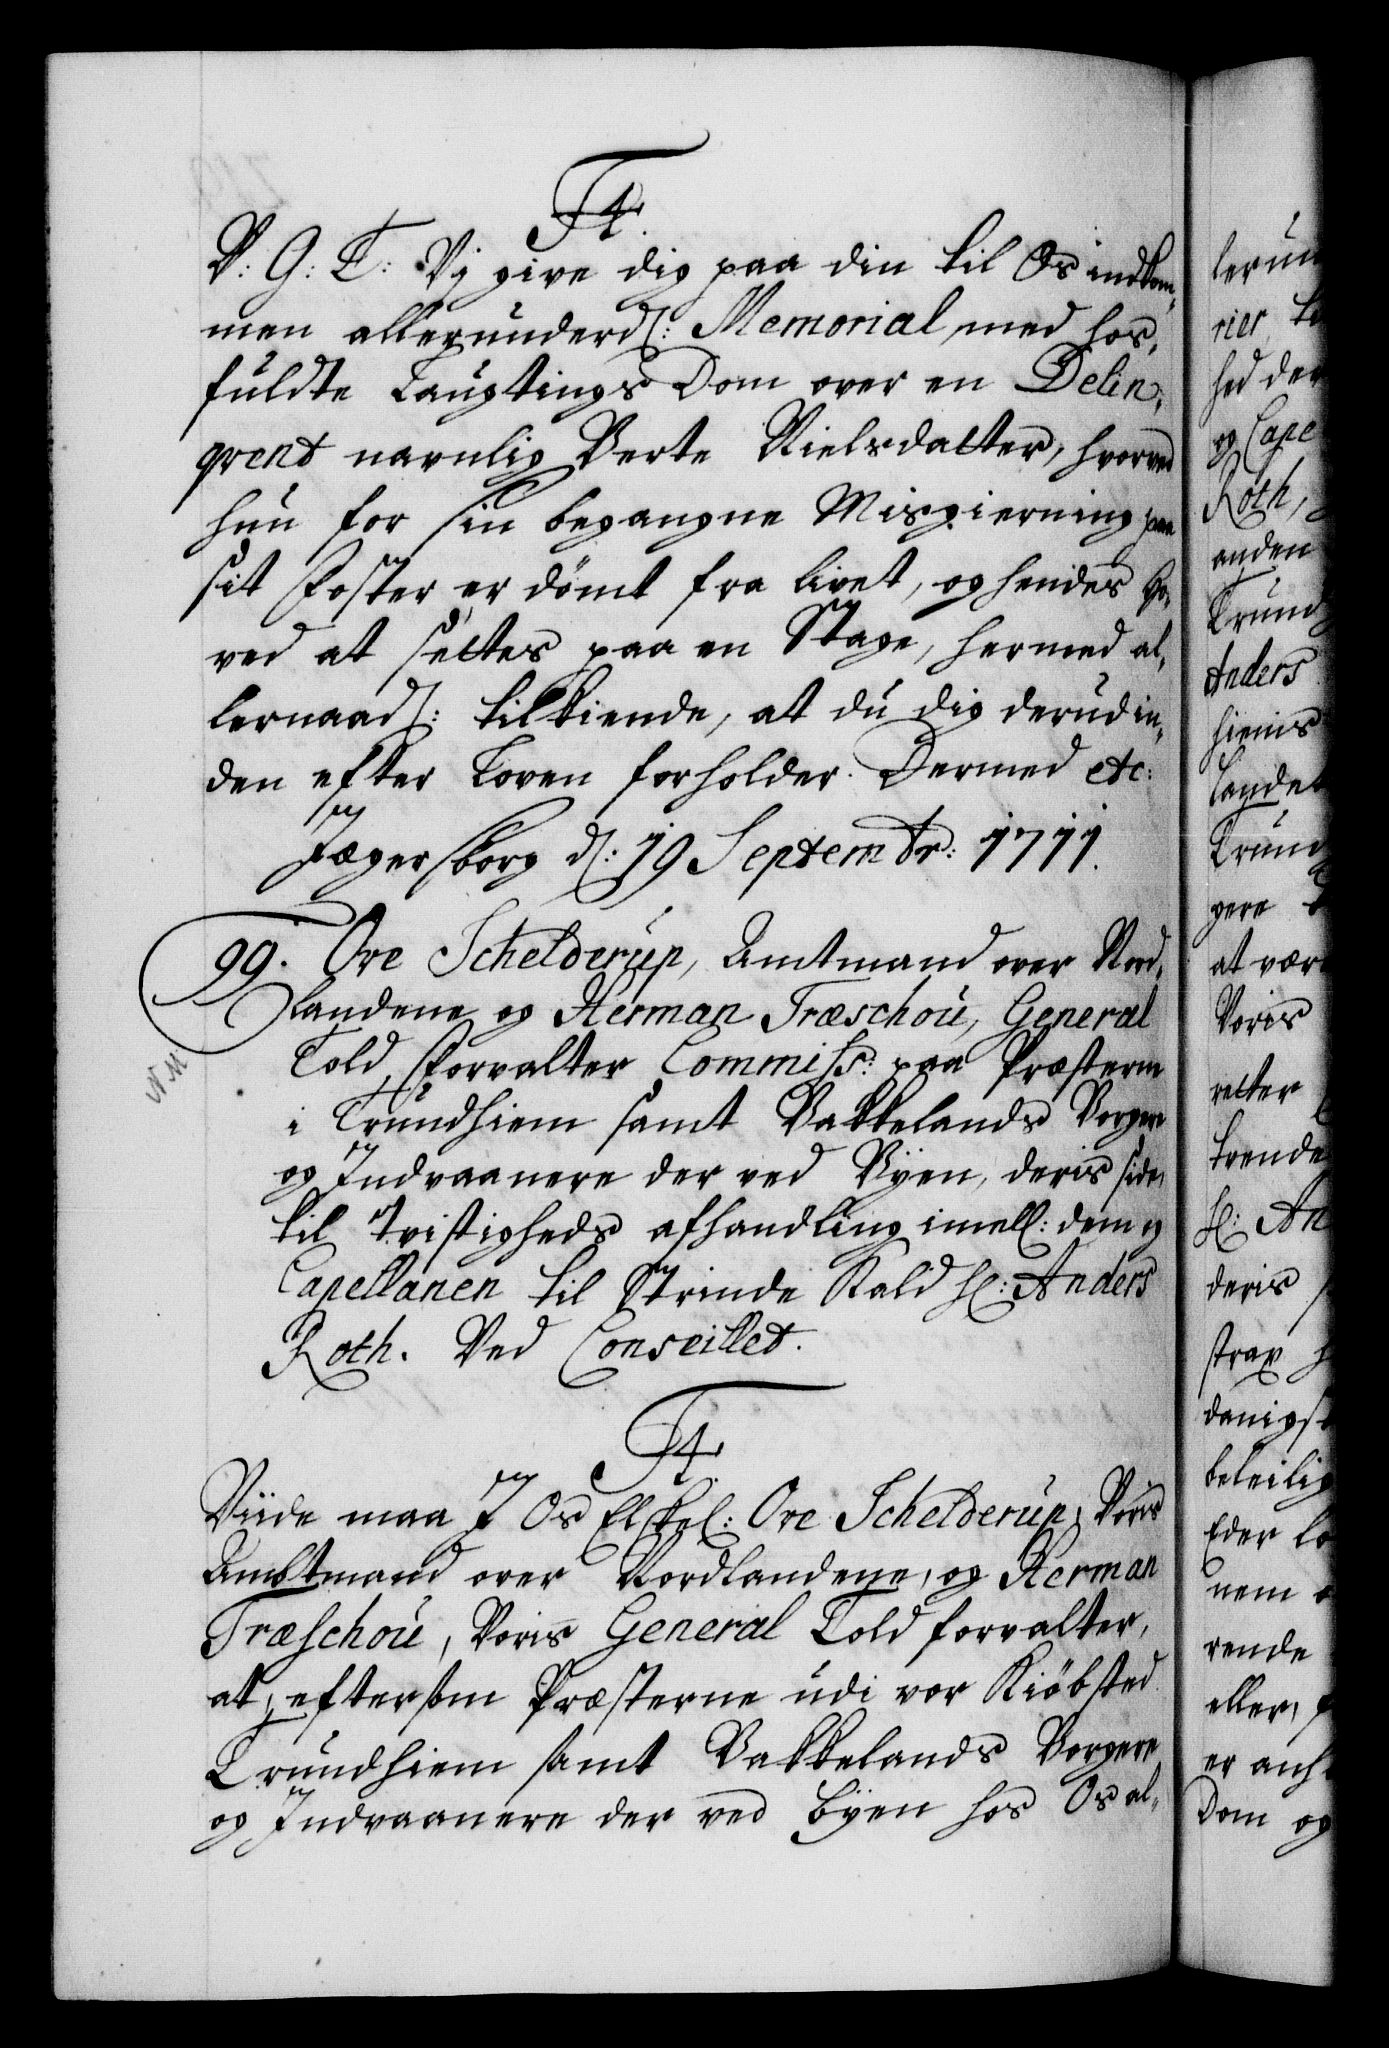 F4.
V: G: T: Vj give dig paa din til Os indkom¬
men allerunderd: Memorial med hos¬
fuldte Laugtings Dom over en Delin¬
qvent navnlig Berte Nielsdatter, hvorved
hun for sin begangne Misgierning paa
sit Foster er dömt fra livet, og hendes Ho¬
ved at settes paa en Stage, hermed al¬
lernaad: tilkiende, at du dig derudin¬
den efter Loven forholder. Dermed etc:
Jægersborg d: 19 Septembr: 1711.
99. Ove Schelderup, Amtmand over Nord¬
landene og Herman Træschou, General
Told Forvalter Commiss: paa Præsterne
i Trundhiem samt Bakkelands Borgere
og Indvaanere der ved Byen, deris side,
til Tvistigheds afhandling imell: dem og
Capellanen til Strinde Kald hl: Anders
Roth. Ved Conseillet.
F4.
Viide maa I Os Elskel: Ove Schelderup, Voris
Ambtmand over Nordlandene, og Herman
Træschou, Voris General Told forvalter,
at, eftersom Præsterne udi vor Kiöbsted
Trundhiem samt Bakkelands Borgere
og Indvaanere der ved byen hos Os al¬
rier
hed der
og Cape
Roth,
anden
Trundh
Anders
hiems
Landet
Trund
gere
at være
Voris
retter
trende
hl: An
deris
strax
danigst
beleilig
Eder lo
nem
rende
eller,
er anh
Dom og